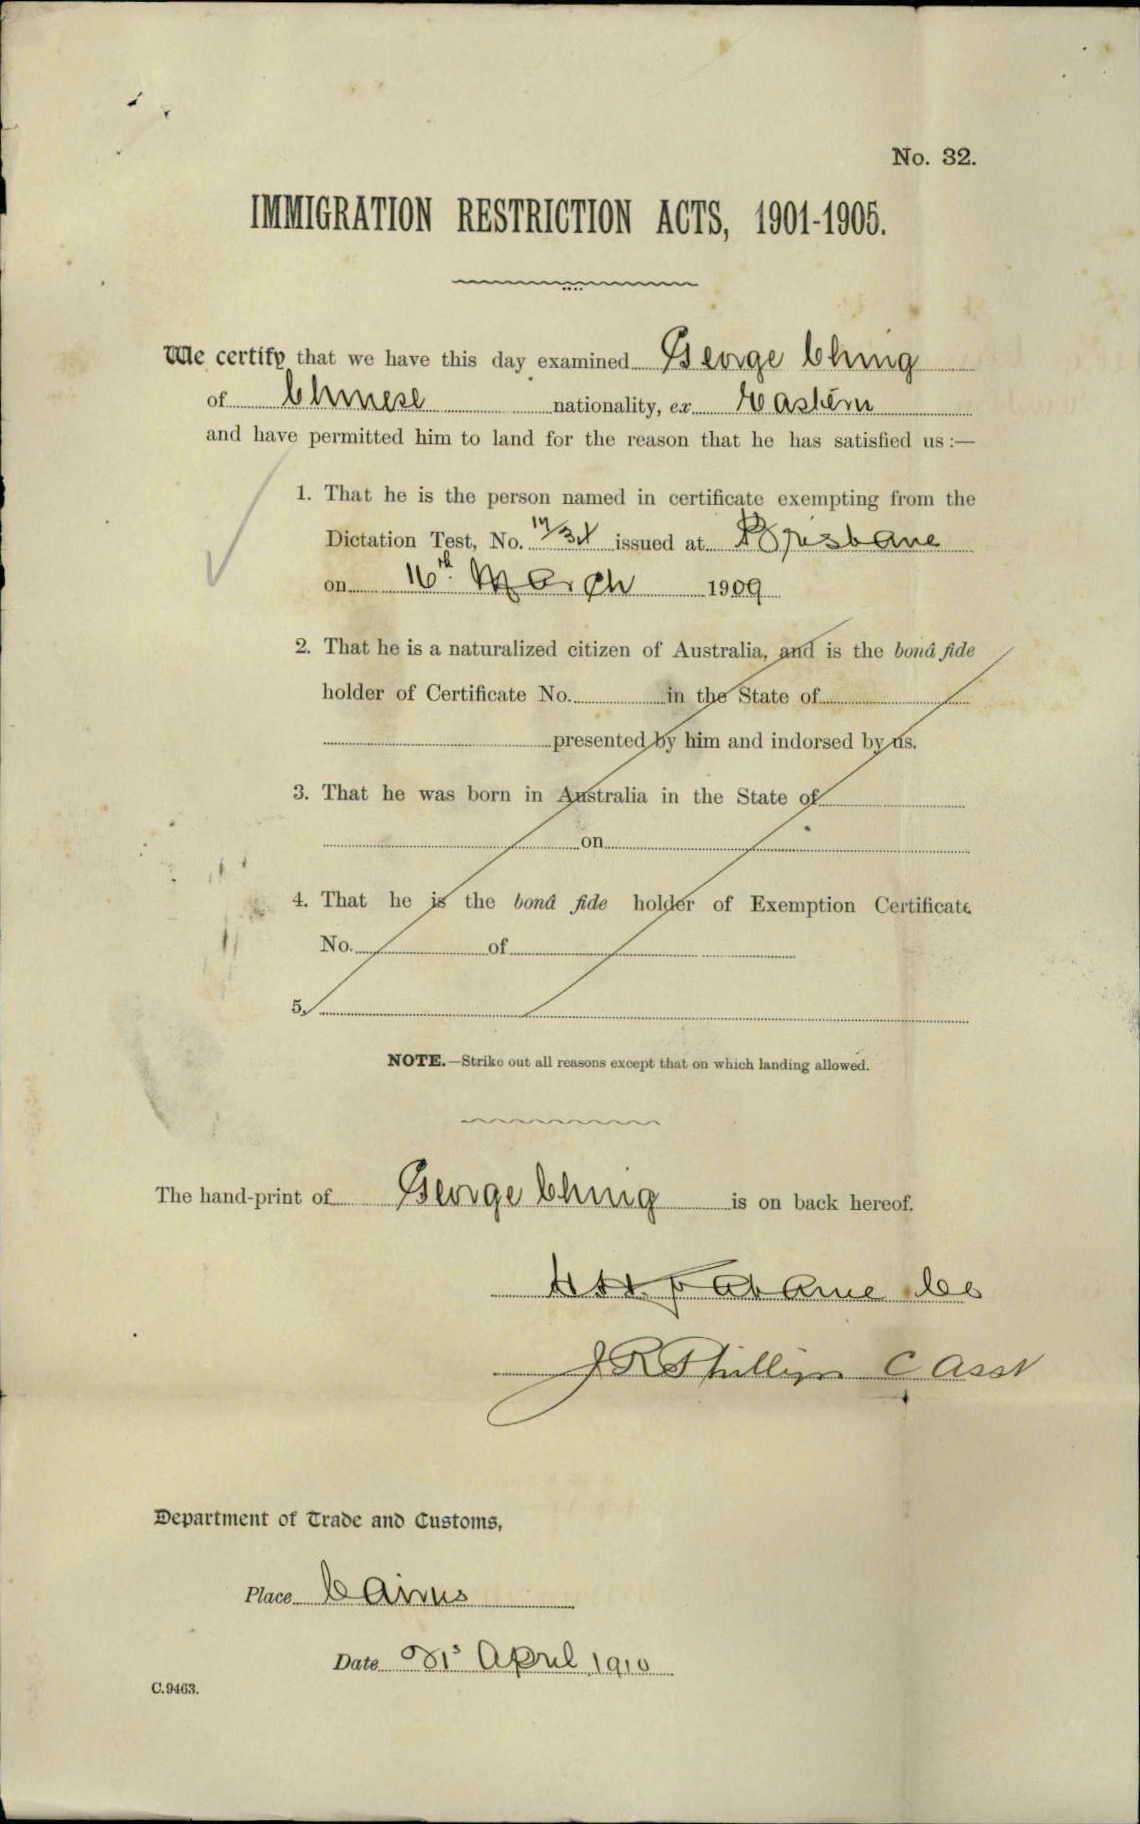 No. 32.
IMMIGRATION RESTRICTION ACTS, 1901-1905.
We certify that we have this day examined George Ching
of Chinese nationality, ex Eastern
and have permitted him to land for the reason that he has satisfied us :—
1. That he is the person named in certificate exempting from the
Dictation Test, No. issued at Brisbane
on 16th March 1909
2. That he is a naturalized citizen of Australia, and is the bonâ fide
holder of Certificate No. in the State of
presented by him and indorsed by us.
3. That he was born in Australia in the State of
on
4. That he is the bonâ fide holder of Exemption Certificate
No. of
5.
NOTE.—Strike out all reasons except that on which landing allowed.
The hand-print of George Ching is on back hereof.
J R Phillips C Asst
Department of Trade and Customs,
Place Cairns
Date 21s April 1910
C.9463.